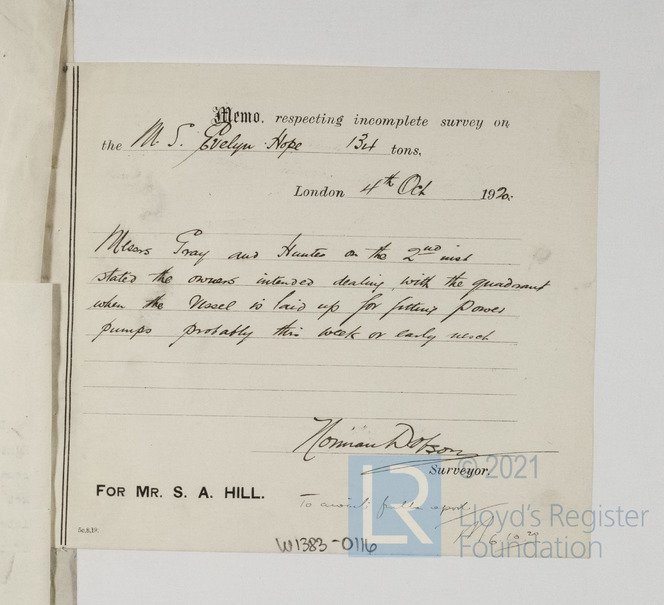 Memo. respecting incomplete survey on
the M. S. Evelyn Hope 134 tons,
London 4th Oct 1920.
Messrs Gray and Hunter on the 2nd inst
stated the owners intended dealing with the quadrant
when the Vessel is laid up for fitting Power
pumps probably this week or early next
Norman Dobson
Surveyor.
FOR MR. S. A. HILL.
To await further report
6.10.20
5c.8.19.
W1383-0116
LR
© 2021
Lloyd's Register
Foundation